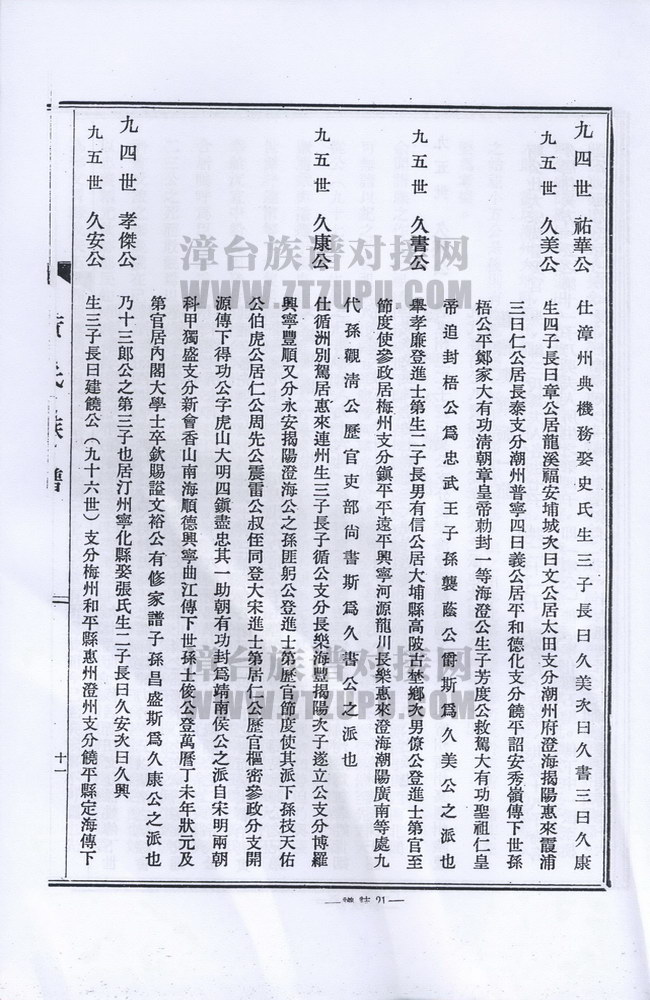 九四世 祐華公 仕漳州典機務娶史氏生三子長曰久美次曰久書三曰久康
九五世 久美公 生四子長曰章公居龍溪福安埔城次曰文公居太田支分潮州府澄海揭陽惠來霞浦
三曰仁公居長泰支分潮州普寧四曰義公居平和德化支分饒平詔安秀嶺傳下世孫
梧公平鄭家大有功清朝章皇帝勅封一等海澄公生子芳度公救駕大有功聖祖仁皇
帝追封梧公爲忠武王子孫襲蔭公爵斯爲久美公之派也
九五世 久書公 舉孝廉登進士第生二子長男有信公居大埔縣高陂古埜鄉次男僚公登進士第官至
節度使參政居梅州支分鎮平平遠平興寧河源龍川長樂惠來澄海潮陽廣南等處九
代孫觀清公歷官吏部尚書斯爲久書公之派也
九五世 久康公 仕循洲別駕居惠來連州生三子長子循公支分長樂海豐揭陽次子遂立公支分博羅
興寧豐順又分永安揭陽澄海公之孫匪躬公登進士第歷官節度使其派下孫枝天佑
公伯虎公居仁公周先公震雷公叔侄同登大宋進士第居仁公歷官樞密參政分支開
源傳下得功公字虎山大明四鎮盡忠其一助朝有功封爲靖南侯公之派自宋明兩朝
科甲獨盛支分新會香山南海順德興寧曲江傳下世孫士俊公登萬曆丁未年狀元及
第官居內閣大學士卒欽賜謚文裕公有修家譜子孫昌盛斯爲久康公之派也
九四世 孝傑公 乃十三郎公之第三子也居汀州寧化縣娶張氏生二子長曰久安次曰久興
九五世 久安公 生三子長曰建饒公（九十六世）支分梅州和平縣惠州澄州支分饒平縣定海傳下
十一
漳台族谱对接网
WWW.ZTZUPU.COM
漳台族谱对接网
WWW.ZTZUPU.COM